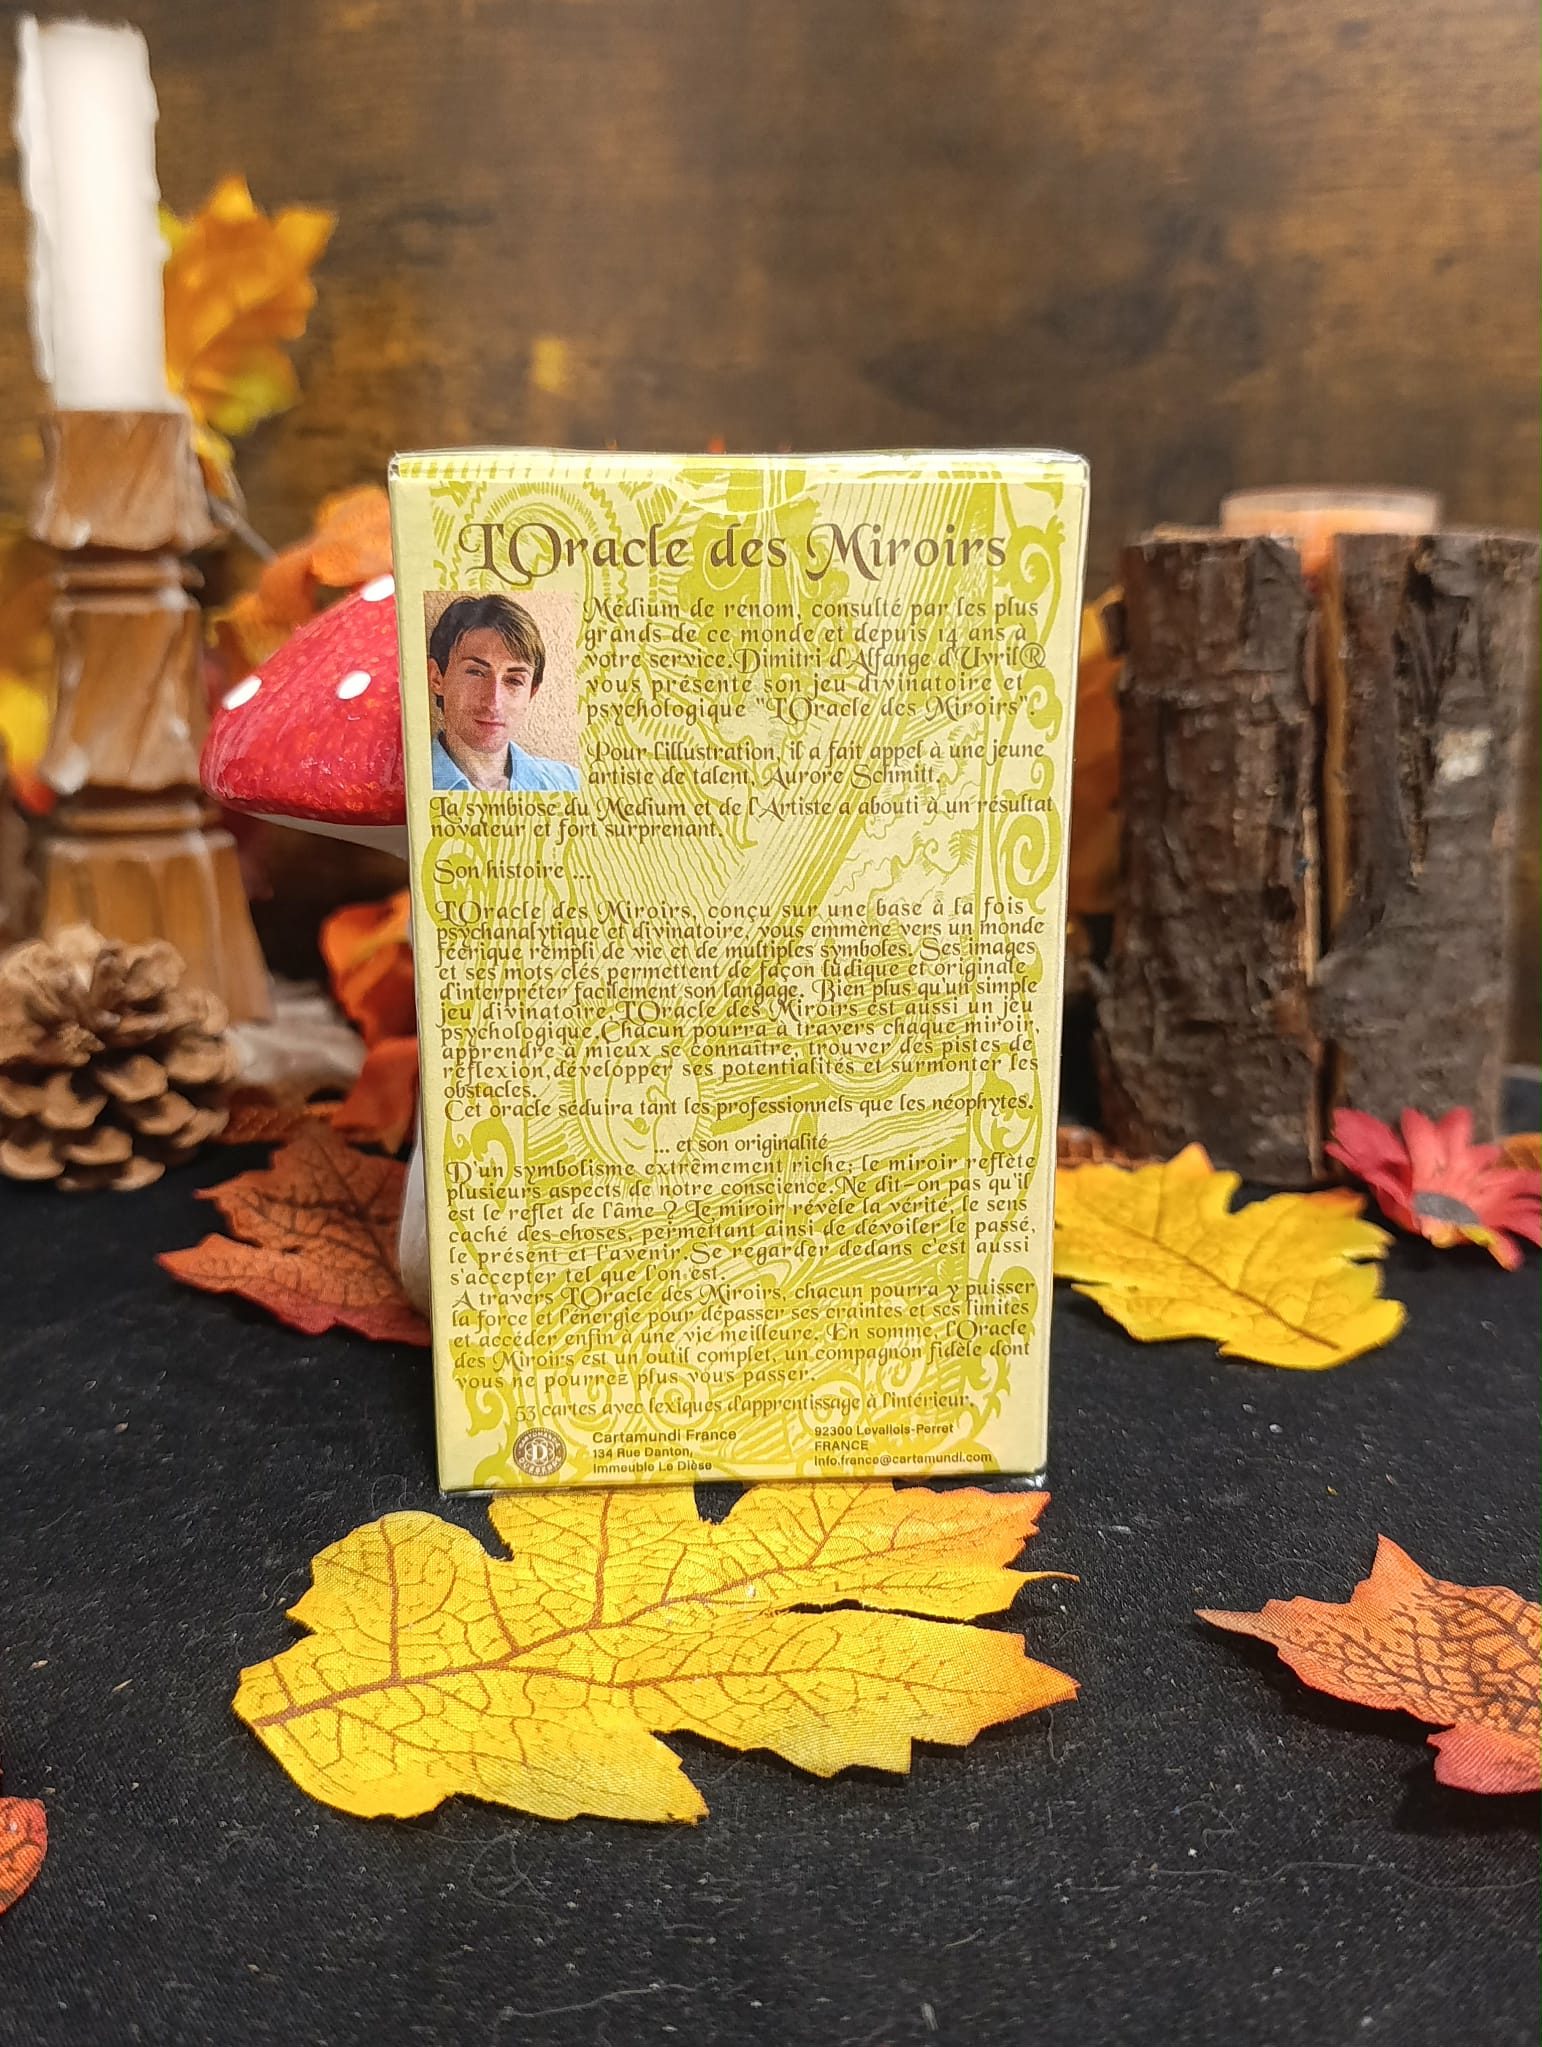 L'Oracle des Miroirs
Médium de renom, consulté par les plus
grands de ce monde et depuis 14 ans à
votre service,Dimitri d'Alfange d'Uvril®
vous présente son jeu divinatoire et
psychologique "L'Oracle des Miroirs".
Pour l'illustration, il a fait appel à une jeune
artiste de talent, Aurore Schmitt.
La symbiose du Medium et de l'Artiste a abouti à un résultat
novateur et fort surprenant.
Son histoire ...
L'Oracle des Miroirs, conçu sur une base à la fois
psychanalytique et divinatoire, vous emmène vers un monde
féérique rempli de vie et de multiples symboles. Ses images
et ses mots clés permettent de façon ludique et originale
d'interpréter facilement son langage. Bien plus qu'un simple
jeu divinatoire,L'Oracle des Miroirs est aussi un jeu
psychologique.Chacun pourra à travers chaque miroir,
apprendre à mieux se connaître, trouver des pistes de
réflexion,développer ses potentialités et surmonter les
obstacles.
Cet oracle séduira tant les professionnels que les néophytes.
... et son originalité
D'un symbolisme extrêmement riche; le miroir reflète
plusieurs aspects de notre conscience.Ne dit-on pas qu'il
est le reflet de l'âme ? Le miroir révèle la vérité, le sens
caché des choses, permettant ainsi de dévoiler le passé,
le présent et l'avenir.Se regarder dedans c'est aussi
s'accepter tel que l'on est.
A travers L'Oracle des Miroirs, chacun pourra y puisser
la force et l'énergie pour dépasser ses craintes et ses limites
et accéder enfin à une vie meilleure. En somme, l'Oracle
des Miroirs est un outil complet, un compagnon fidèle dont
vous ne pourrez plus vous passer.
53 cartes avec lexiques d'apprentissage à l'intérieur.
Cartamundi France
134 Rue Danton,
Immeuble Le Dièse
92300 Levallois-Perret
FRANCE
info.france@cartamundi.com
D